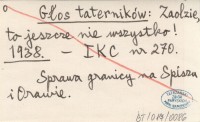 Głos taterników: Zaolzie,
to jeszcze nie wszystko!
1938. - IKC nr 270.
Sprawa granicy na Spiszu
i Orawie.